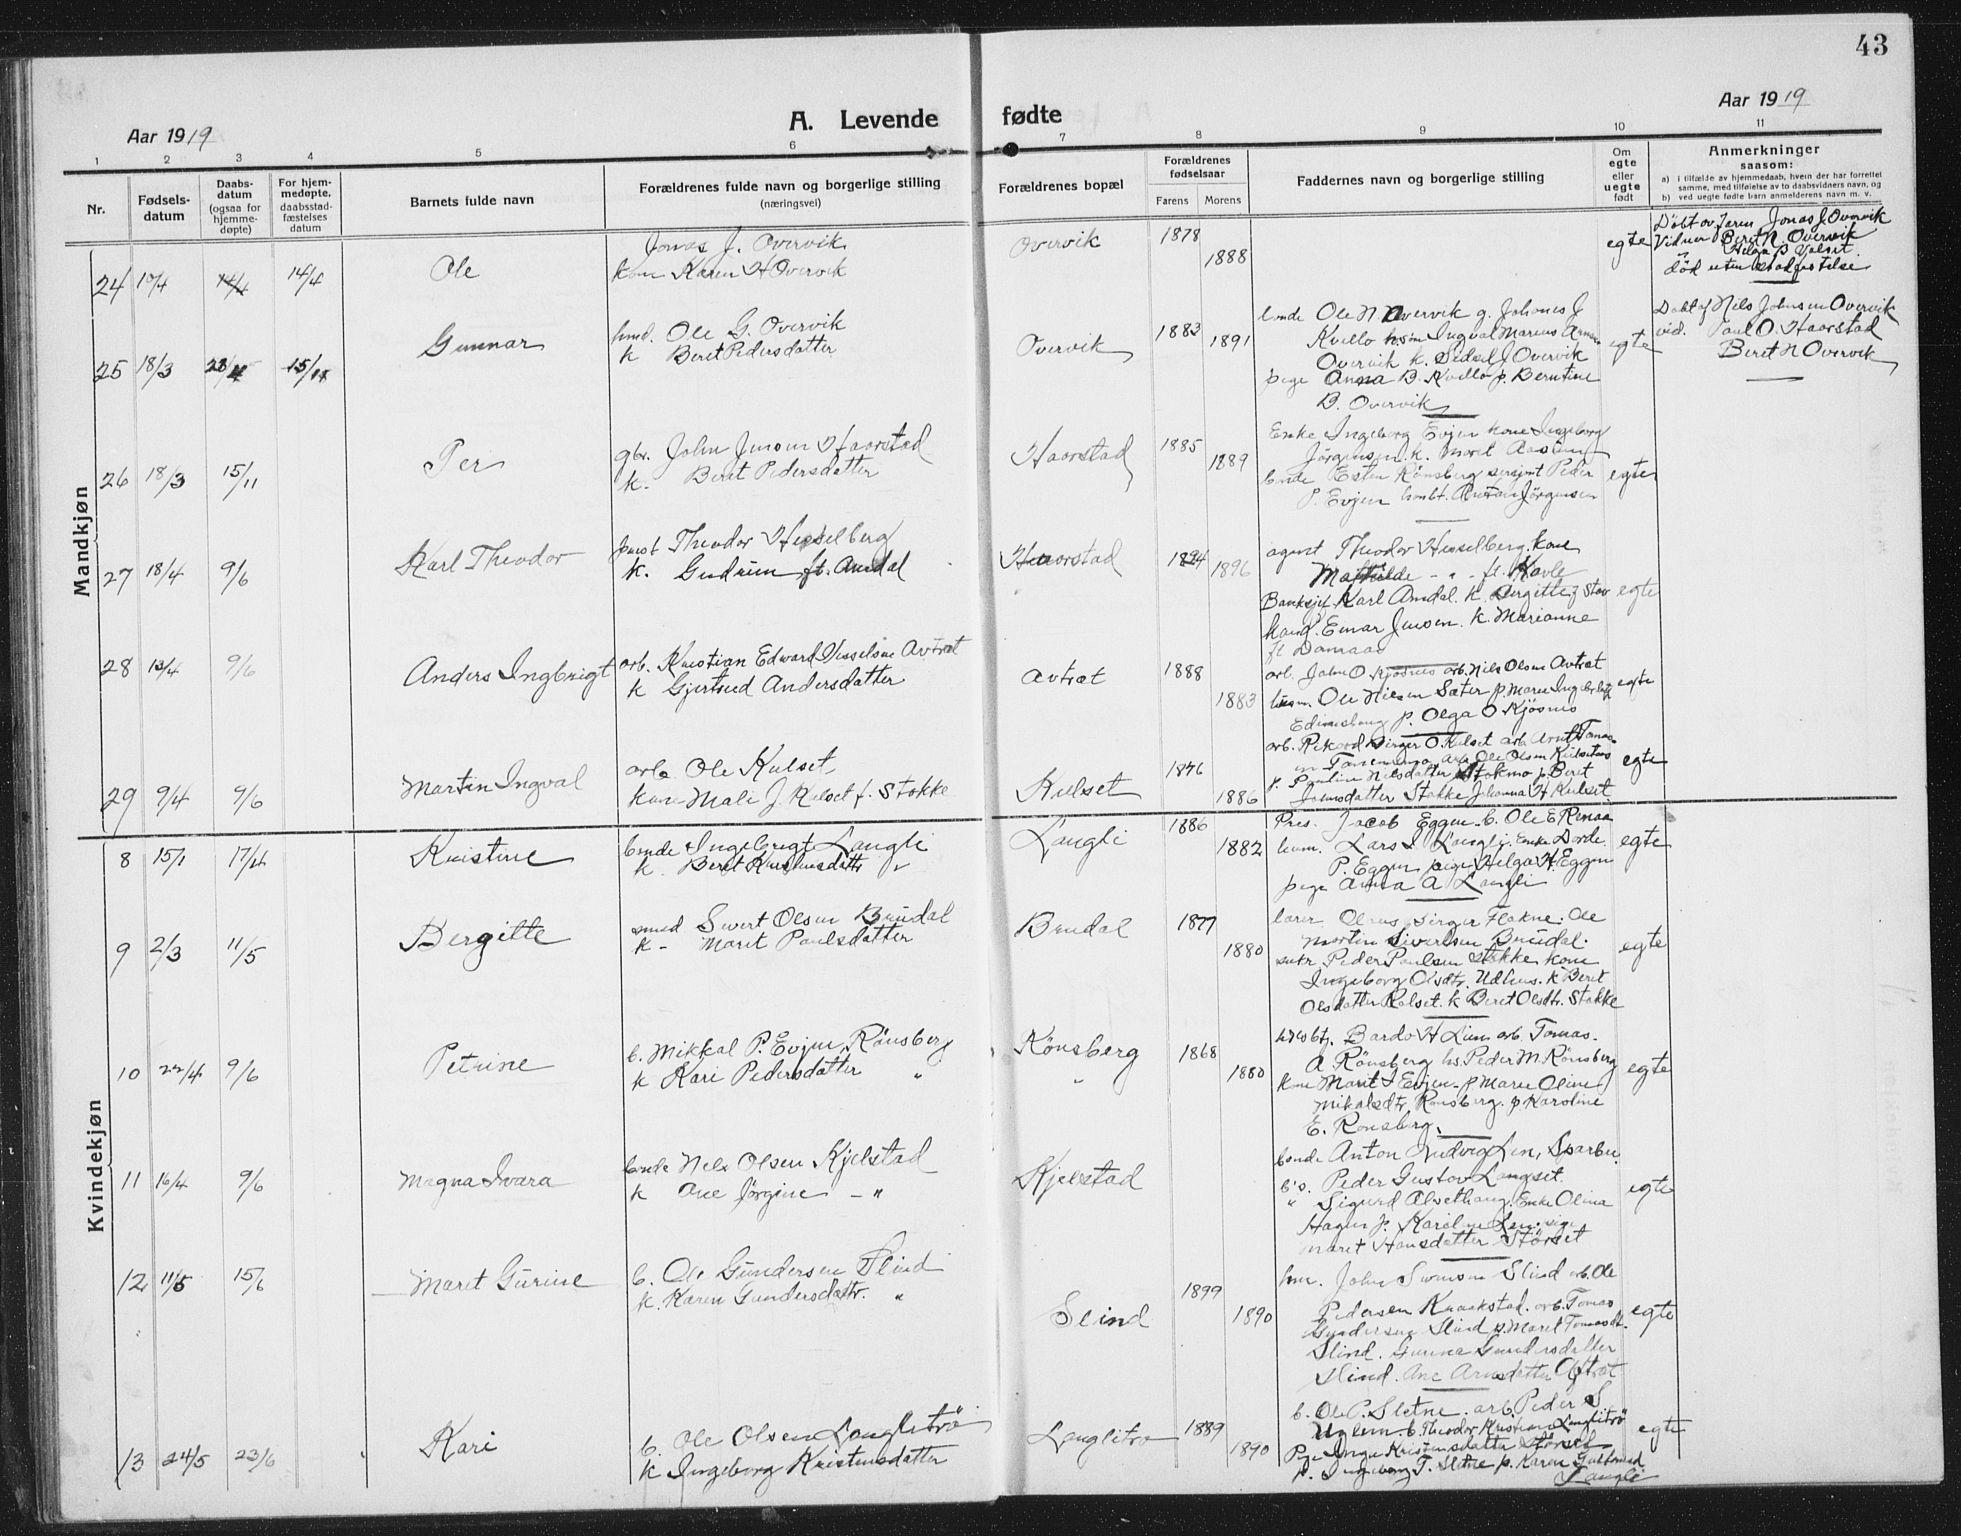 43
Aar 1919
A. Levende fødte
Aar 1919
1 2 3 4 5 6 7 8 9 10 11
Nr.
Fødsels-
datum
Daabs-
datum
(ogsaa for
hjemme-
døpte)
For hjem-
medøpte,
daabsstad-
fæstelses
datum
Barnets fulde navn
Forældrenes fulde navn og borgerlige stilling
(næringsvei)
Forældrenes bopæl
Forældrenes
fødselsaar
Farens Morens
Faddernes navn og borgerlige stilling
Om
egte
eller
uegte
født
Anmerkninger
saasom:
a) i tilfælde av hjemmedaab, hvem der har forrettet
samme, med tilføielse av to daabsvidners navn, og
b) ved uegte fødte barn anmelderens navn m. v.
Mandkjøn
24 10/4 14/4 14/4 Ole
Jonas J. Overvik
kone Karen H Overvik
Overvik 1878 1888
egte
Døbt av faren Jonas J Overvik
Vidner Beret N. Overvik
Helga P Valset
død uten stadfæstelse
25 18/3 23/4 15/11 Gunnar
Ole G. Overvik
k Beret Pedersdatter
Overvik 1883 1891
bonde Ole N Overvik g. Johanes J
Kvello Ingval Marius
Overvik k. Sidsel J Overvik
pige Anna B. Kvello p. Berntine
B. Overvik
egte
Døbt af Nils Johnsen Overvik
vid. Paul O. Haarstad
Beret N Overvik
26 18/3 15/11 Per
gbr. John Jensen Haarstad
k. Beret Pedersdatter
Haarstad 1885 1889
Enke Ingeborg Evjen kone Ingeborg
Jørgensen k. Marit
bonde Esten Rønsberg sersjant Peder
P. Evjen Jørgensen
egte
27 18/4 9/6 Karl Theodor
Theodor Hesselberg
k. Gudrun ft. Amdal
Haarstad 1894 1896
agent Theodor Hesselberg. kone
Mathilde - " - ft. Kavle
Banksjef Karl Amdal. k. Birgitte f. Stav
Einar Jensen. k. Marianne
ft Damaas
egte
28 13/4 9/6 Anders Ingbrigt
arb. Kristian Edvard Avtret
k Gjertrud Andersdatter
avtræt 1888 1883
arb. John O Kjøsnes arb. Nils Olsen Avtræt
Ole Nilsen Sæter p. Maren
p. Olga O Kjøsnes
egte
29 9/4 9/6 Martin Ingval
arb. Ole Kulset
kone Mali J. Kulset f. Stokke
Kulset 1876 1886
arb. Rikard Birger O. Kulset arb. Arnt
arb Ole Olsen
k. Pauline Nilsdatter Stokmo p. Beret
Johnsdatter Stokke Johanna H Kulset
egte
Kvindekjøn
8 15/1 17/4 Kristine
bonde Ingebrigt Langli
k. Beret "
Langli 1886 1882
Jacob Eggen. b. Ole E Renaa
Lars Langli. Enke Dorde
P. Eggen pige Helga H. Eggen
pige Anna A Langli
egte
9 2/3 11/5 Bergitte
smed Sivert Olsen Brudal
k - Marit Paulsdatter
Brudal 1877 1880
lærer Olaus Birger Flakne. Ole
Martin Sivertsen Brudal.
Peder Paulsen Stokke kone
Ingeborg Olsdtr. Udhus. k Beret
Olsdatter Kulset. k Beret Olsdtr. Stokke
egte
10 22/4 9/6 Petrine
b. Mikkal P. Evjen, Rønsberg
k Kari Pedersdatter "
Rønsberg
" 1868 1880
Bardo H Lien arb. Tomas
A Rønsberg hs. Peder M. Rønsberg
kone Marit Evjen. p Maren Oline
Mikalsdtr. Rønsberg. p Karoline
E. Rønsberg.
egte
11 16/4 9/6 Magna Ivara
bonde Nels Olsen Kjelstad
k Ane Jørgine - "
Kjelstad
bonde Anton Ludvig Lien, Sparbu
b's. Peder Gustav Langset.
" Sigurd Alsethaug. Enke Olina
Hagen p. Karoline Lien. pige
Maret Hansdatter Størset
egte
12 11/5 15/6 Maret Gurine
b. Ole Gundersen Slind
k. Karen Gundersdatr. "
Slind 1899 1890
John Svensen Slind arb. Ole
Pedersen Kraakstad. arb. Tomas
Gundersen Slind p. Maret Tomasdt.
Slind. Gunna Gundersdatter
Slind. Ane Arnsdatter Aftræt
egte
13 24/5 23/6 Kari
b. Ole Olsen Langlitrø
k Ingeborg Kristensdatter
Langlitrø 1889 1890
b. Ole P. Sletne. arb. Peder S
Uglem. b. Theodor Kristian Langlitrø
Pige Inga Kristensdatter Størset
p. Ingeborg T. Sletne p. Karen
Langli
egte